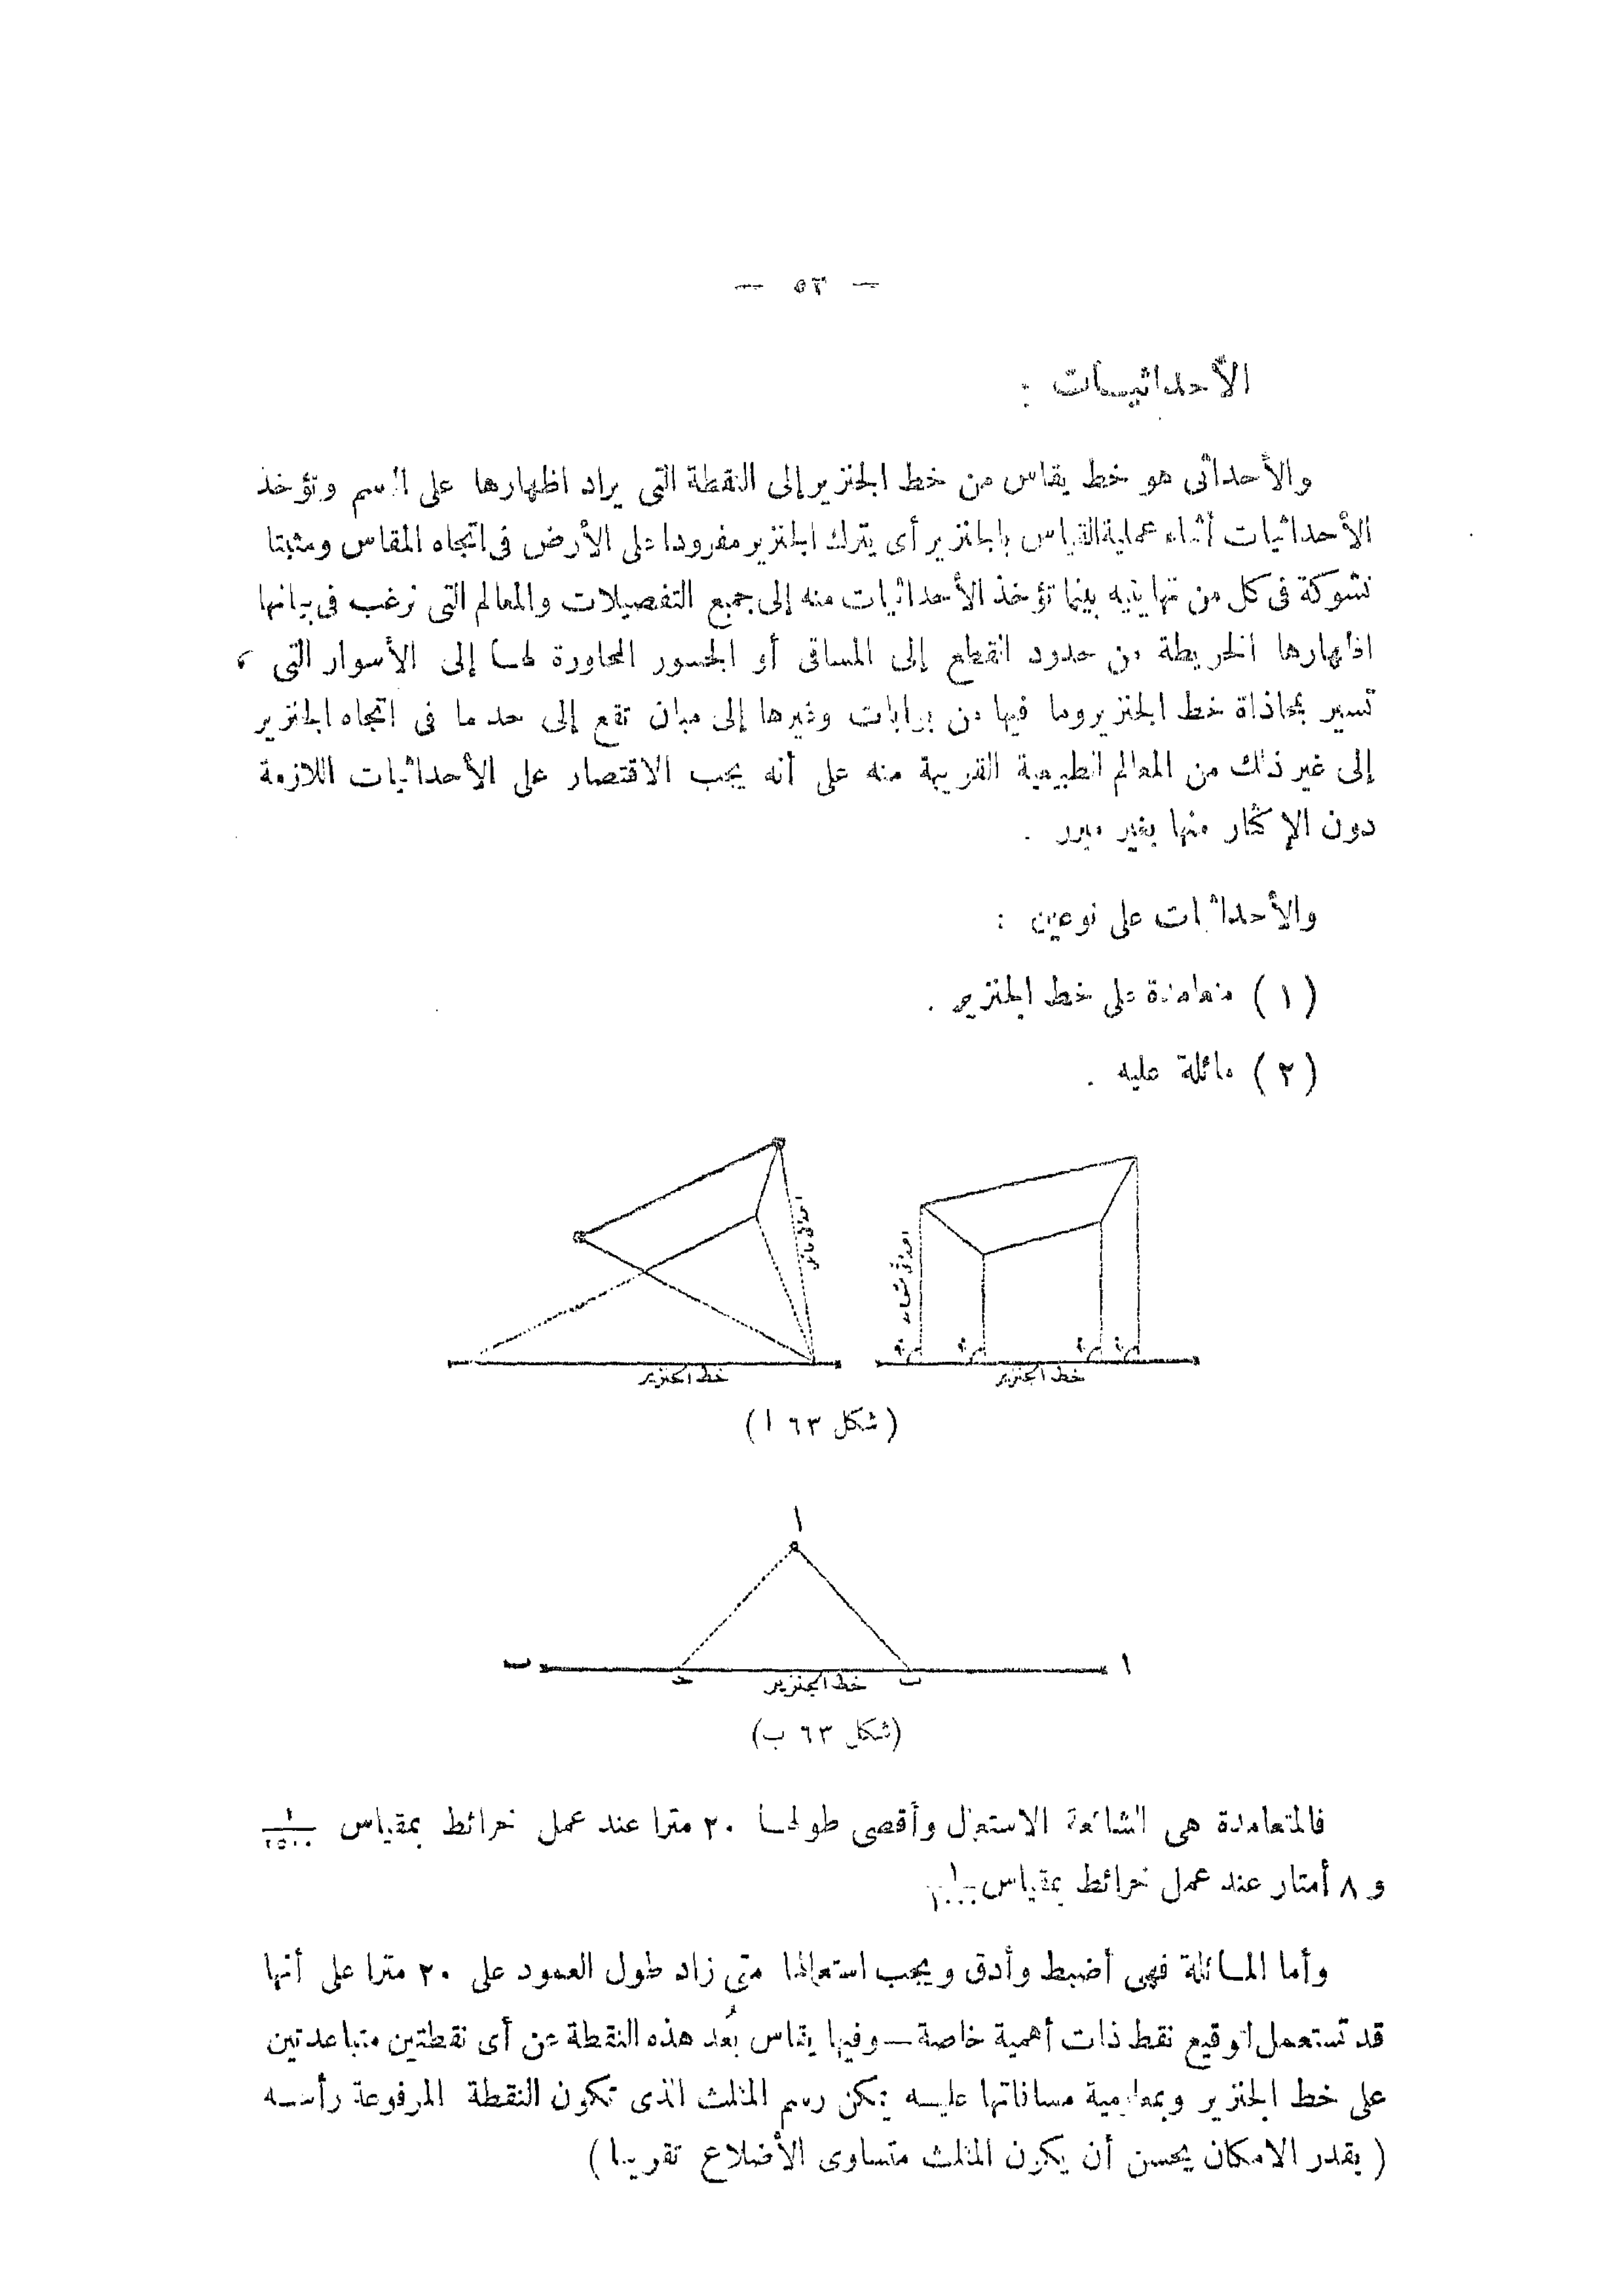 — ٥٣ —
الأحداثيات :
والأحداثى هو خط يقاس من خط الجنزير إلى النقطة التى يراد اظهارها على الرسم وتؤخذ
الأحداثيات أثناء عملية القياس بالجنزير أى يترك الجنزير مفرودا على الأرض فى اتجاه المقاس ومثبتا
بشوكة فى كل من نهايتيه بينما تؤخذ الأحداثيات منه إلى جميع التفصيلات والمعالم التى نرغب فى بيانها
اظهارها الخريطة من حدود القطع إلى المساقى أو الجسور المجاورة لها إلى الأسوار التى
تسير بمحاذاة خط الجنزير وما فيها من بوابات وغيرها إلى مبان تقع إلى حد ما فى اتجاه الجنزير
إلى غير ذلك من المعالم الطبيعية القريبة منه على أنه يجب الاقتصار على الأحداثيات اللازمة
دون الإكثار منها بغير مبرر .
والأحداثيات على نوعين :
(١) متعامدة على خط الجنزير .
(٢) مائلة عليه .
احداثى متعامد
احداثى مائل
خط الجنزير
خط الجنزير
(شكل ٦٣ ا)
ا
ا
ب
ب
خط الجنزير
ح
(شكل ٦٣ ب)
فالمتعامدة هى الشائعة الاستعمال وأقصى طولها ٢٠ مترا عند عمل خرائط بمقياس ١/٢٥٠٠
و ٨ أمتار عند عمل خرائط بمقياس
وأما المائلة فهى أضبط وأدق ويجب استعمالها متى زاد طول العمود على ٢٠ مترا على أنها
قد تستعمل لتوقيع نقط ذات أهمية خاصة — وفيها يقاس بُعد هذه النقطة عن أى نقطتين متباعدتين
على خط الجنزير وبمعلومية مسافاتها عليه يمكن رسم المثلث الذى تكون النقطة المرفوعة رأسه
( بقدر الامكان يحسن أن يكون المثلث متساوى الأضلاع تقريبا )